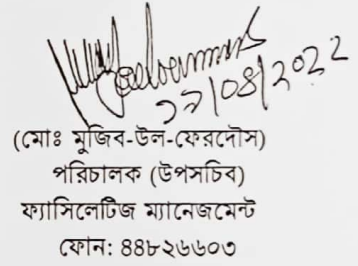 ২২/০৪/2022
(মোঃ মুজিব-উল-ফেরদৌস)
পরিচালক (উপসচিব)
ফ্যাসিলেটিজ ম্যানেজমেন্ট
ফোন: ৪৪৮২৬৬০৩